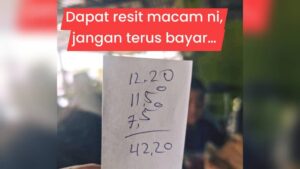 Dapat resit macam ni,
jangan terus bayar...
12.20
11,50
7,50
42,20